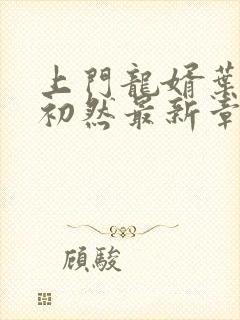 上門龍婿葉
初然最新章
顾駿